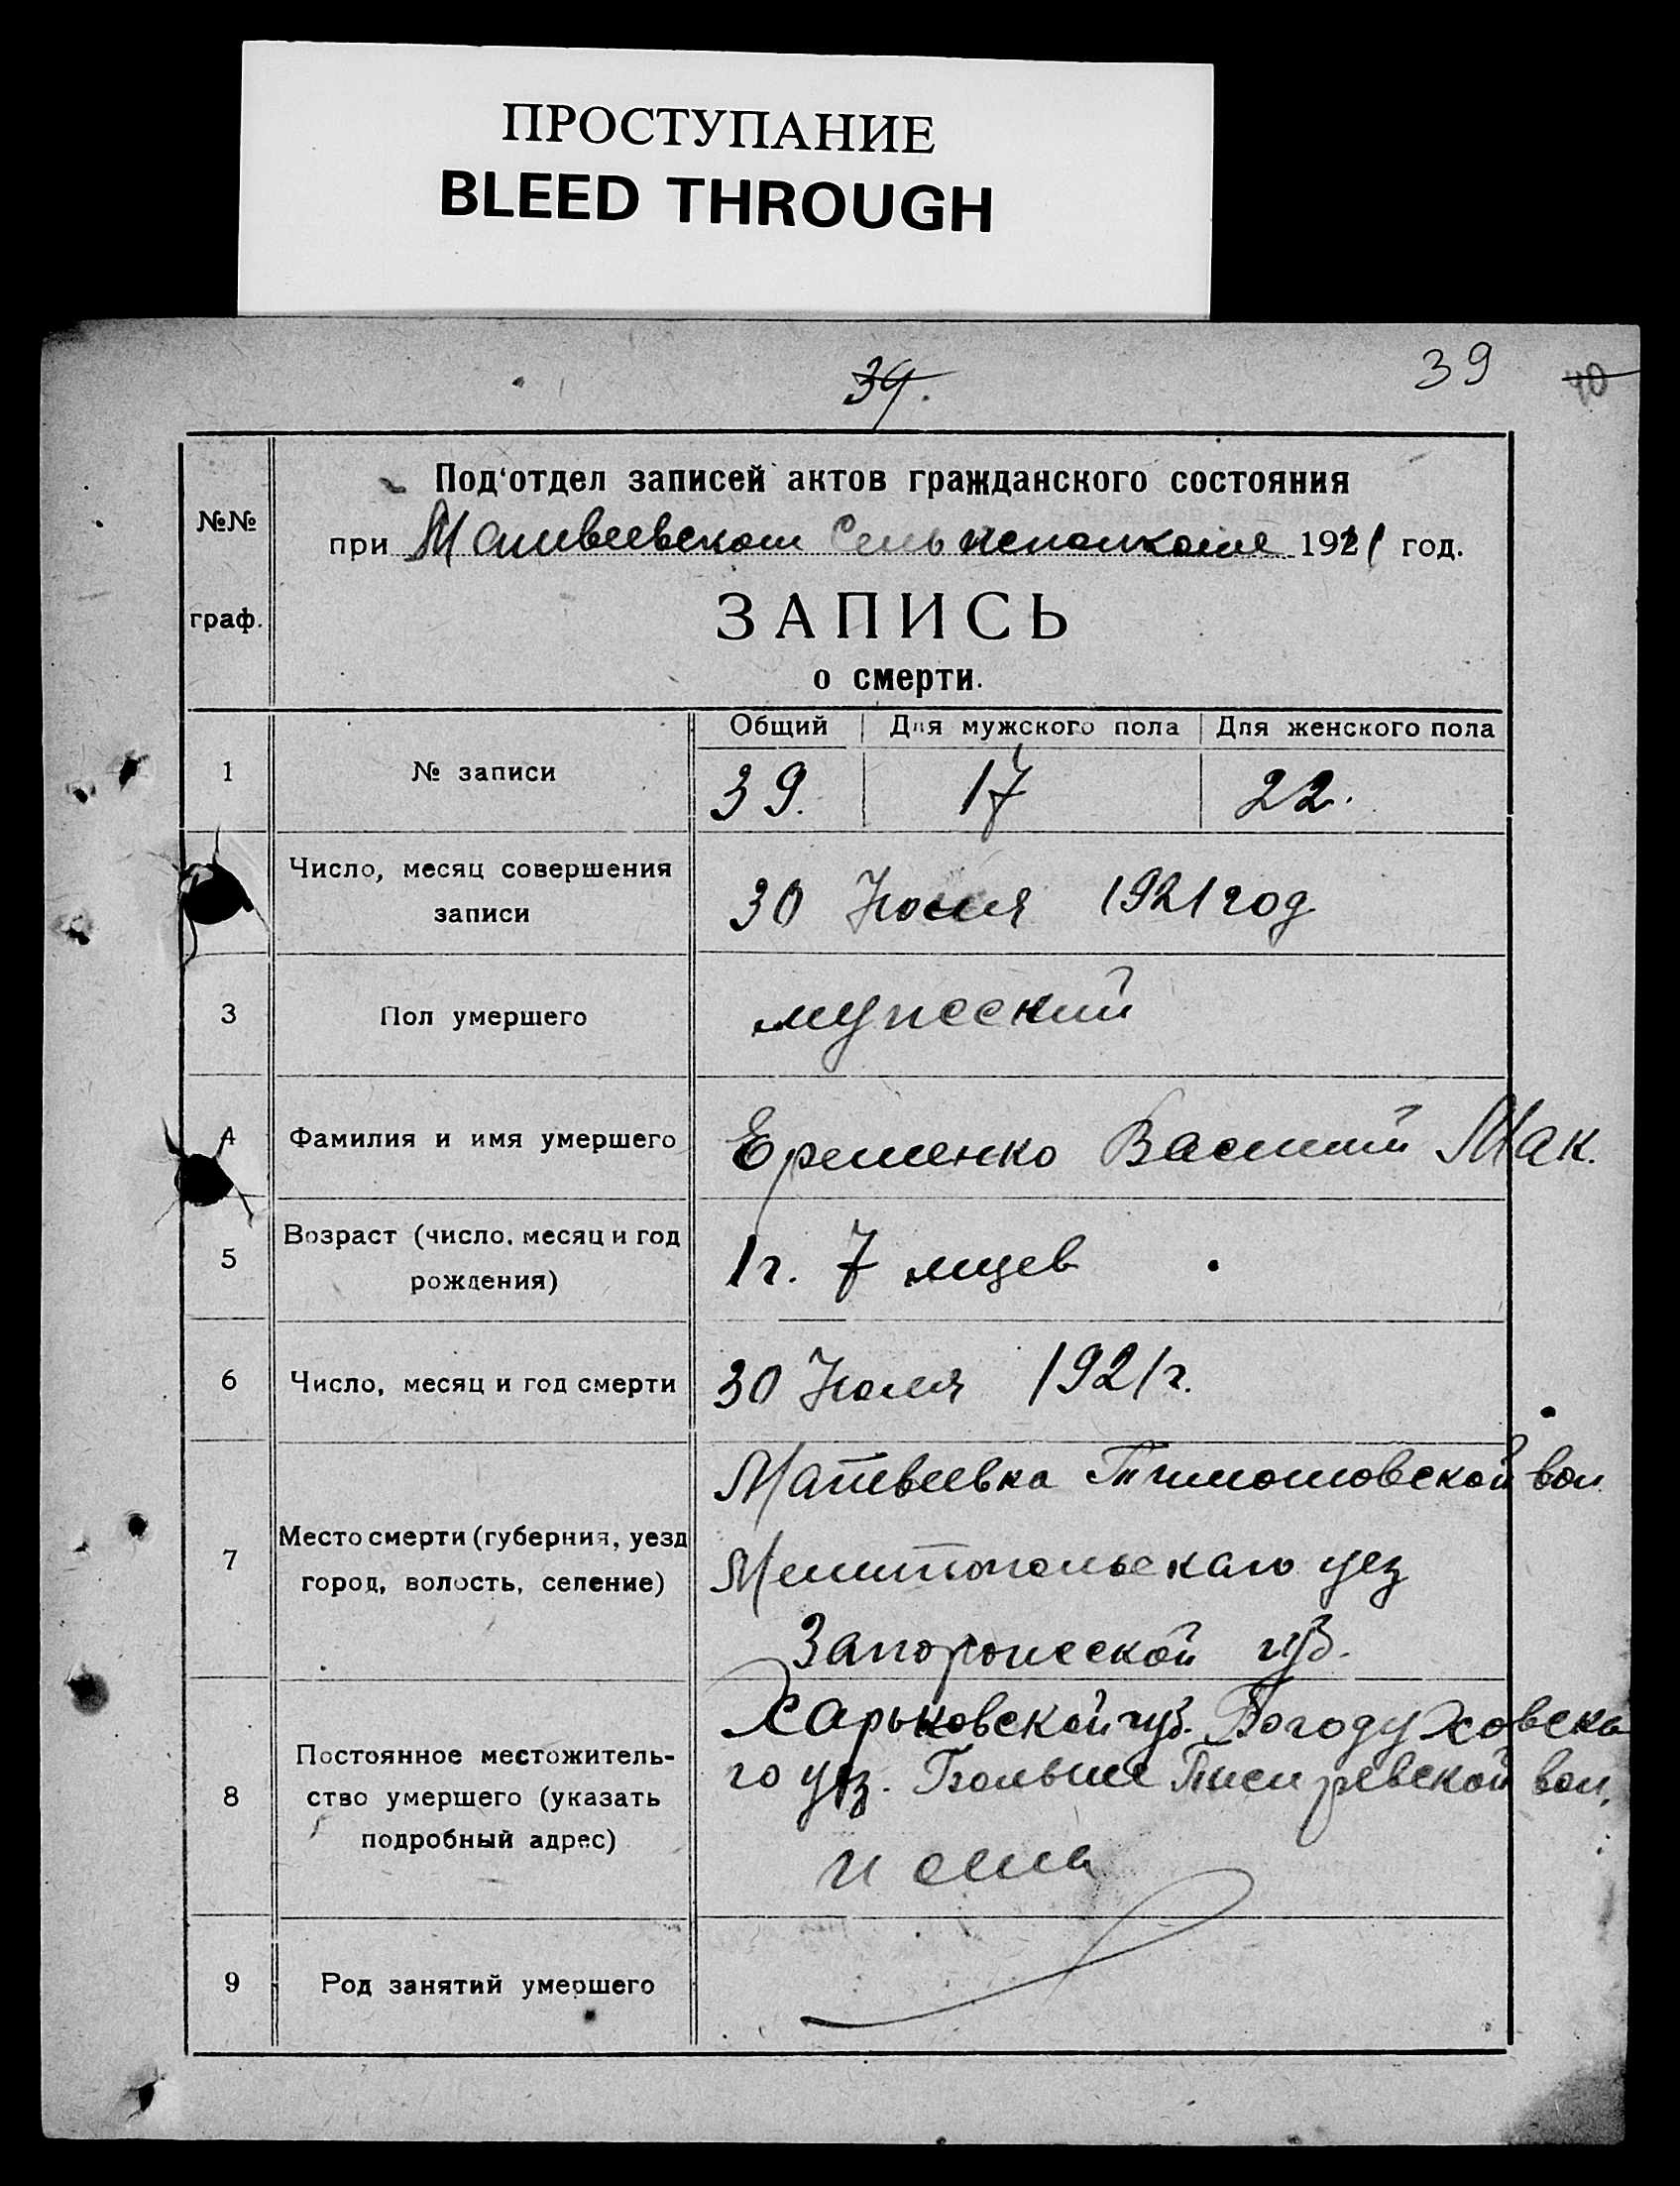 ПРОСТУПАНИЕ
BLEED THROUGH
39.
39
40
Под‘отдел записей актов гражданского состояния
№№
при Матвеевском Сельисполкоме 1921 год.
граф.
ЗАПИСЬ
о смерти.
Общий Для мужского пола Для женского пола
1 № записи 39. 17 22.
Число, месяц совершения
записи
30 Июля 1921 год
3 Пол умершего мужеский
4 Фамилия и имя умершего Еременко Василий Мак.
Возраст (число, месяц и год
5 рождения) 1 г. 7 мцев
6 Число, месяц и год смерти 30 Июля 1921 г.
Матвеевка Тимошовской вол.
7 Место смерти (губерния, уезд
город, волость, селение)
Мелитопольскаго уез
Запорожеской губ.
Харьковской губ. Богодуховска
Постоянное местожитель-
8 ство умершего (указать
подробный адрес)
го уез. Больше Писаревской вол.
9 Род занятий умершего